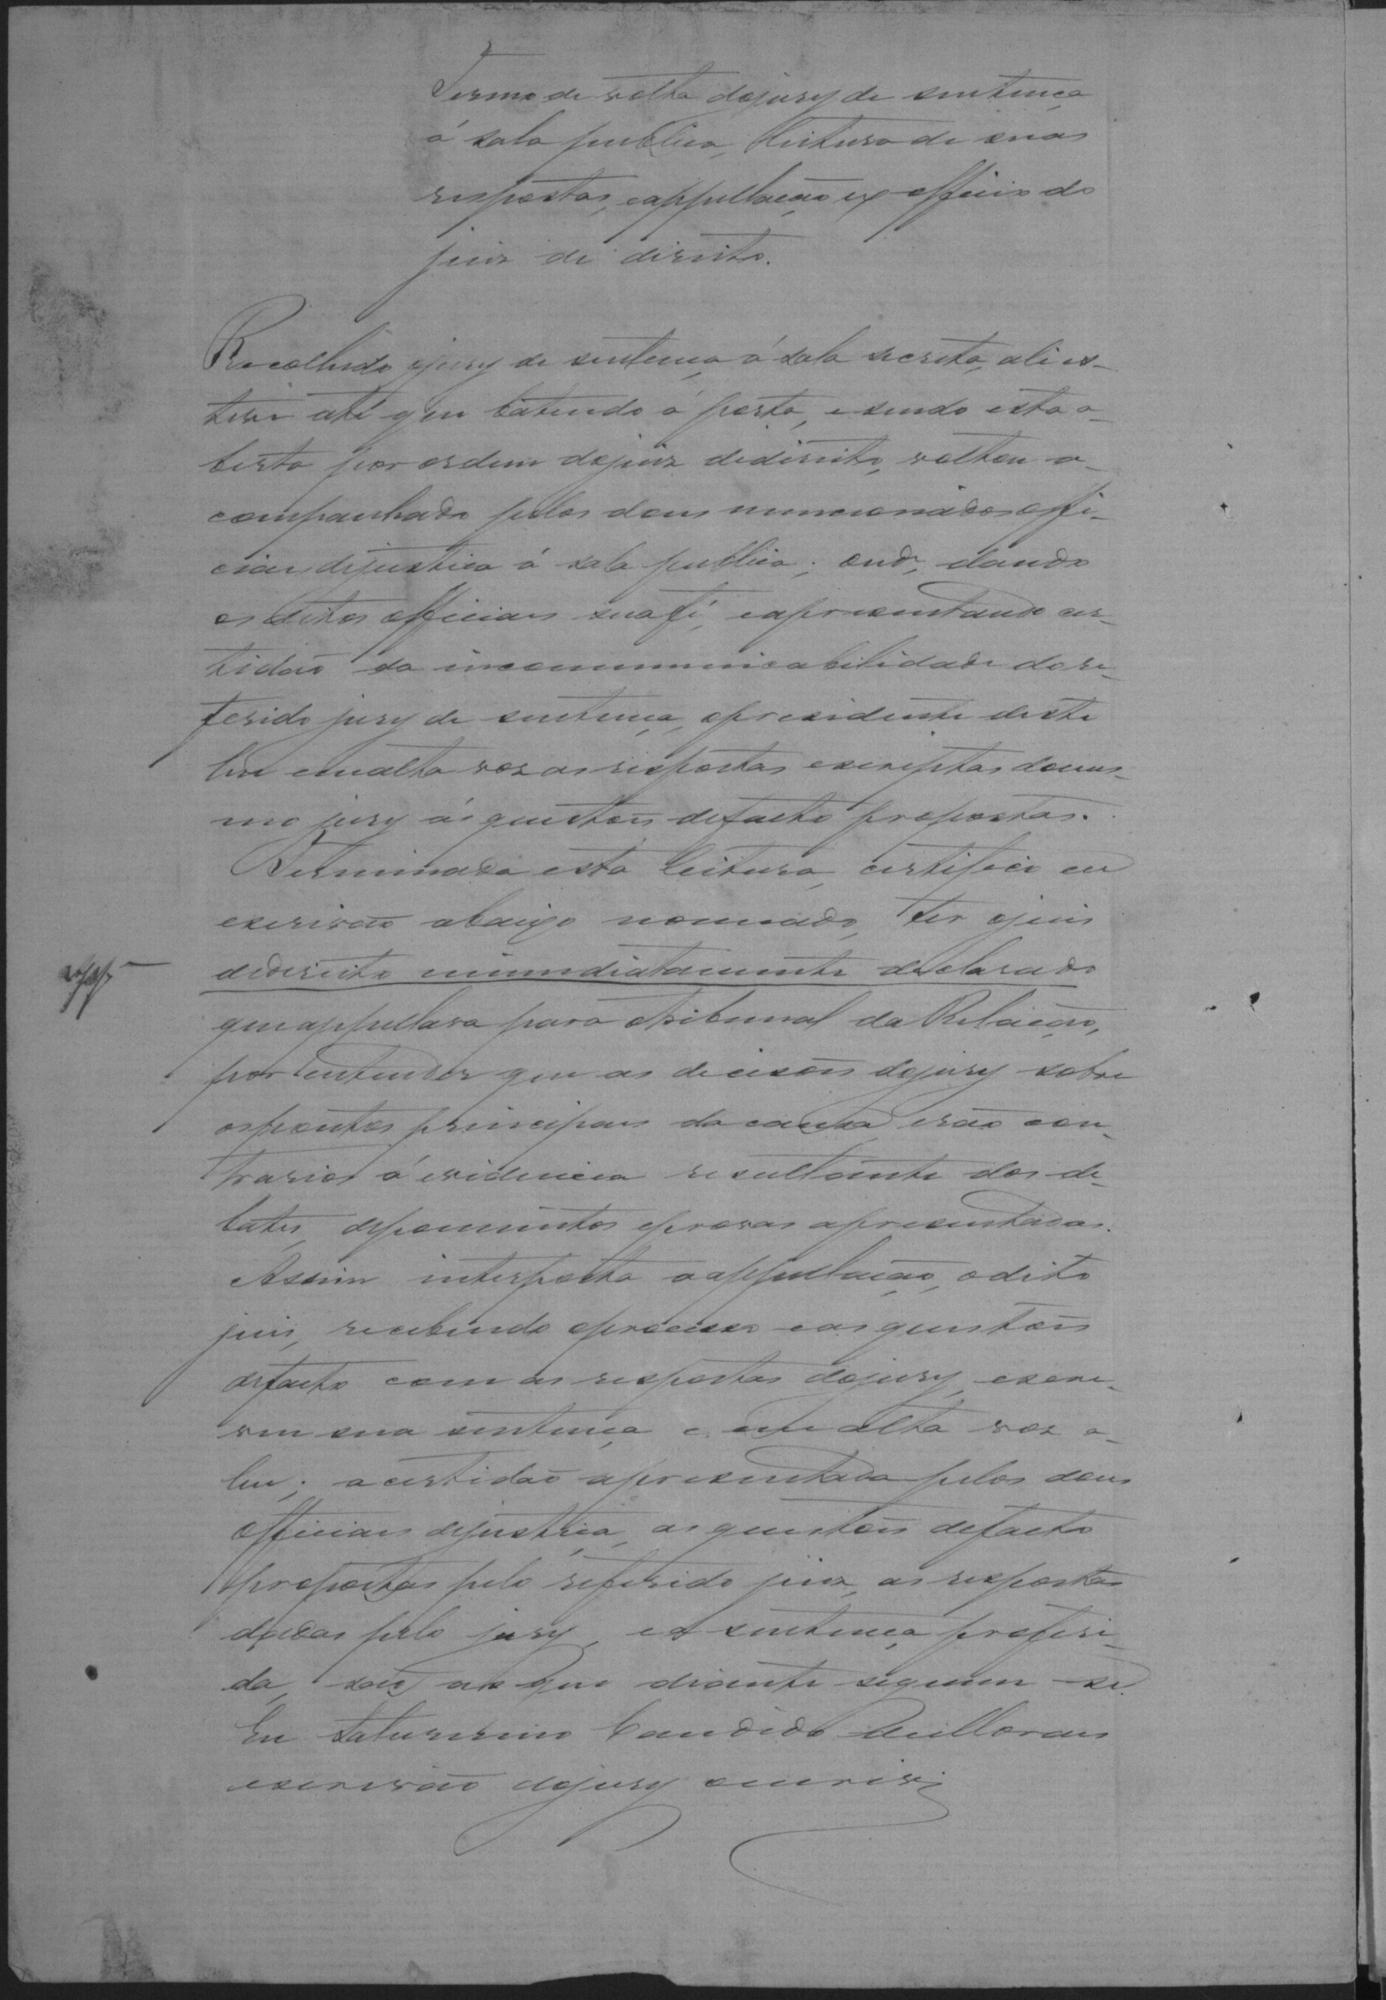 Termo de volta do jury de sentença
á sala publica, leitura de suas
respostas, e appellação ex-officio do
juiz de direito.
Recolhido o jury de sentença á sala secreta, ali es-
teve até que batendo á porta, e sendo esta a-
berta por ordem do juiz de direito, voltou a-
companhado pelos dous mencionados offi-
ciaes de justiça á sala publica; onde, dando
os ditos officiaes sua fé, e apresentando cer-
tidão da incommunicabilidade do re-
ferido jury de sentença, o presidente deste
leu em alta voz as respostas escriptas do mes-
mo jury ás questões de facto propostas.
Terminada esta leitura, certifico eu
escrivão abaixo nomeado, ter o juiz
de direito immediatamente declarado
que appellava para o Tribunal da Relação,
por entender que as decisões do jury sobre
os pontos principaes da causa erão con-
trarias á evidencia resultante dos de-
bates, depoimentos e provas apresentadas.
Assim interposta a appellação, o dito
juiz, recebendo o processo e as questões
de facto com as respostas do jury, escre-
veu sua sentença e em alta voz a
leu; a certidão apresentada pelos dous
officiaes de justiça, as questões de facto
propostas pelo referido juiz, as respostas
dadas pelo jury, e a sentença proferi-
da, são as que diante seguem-se.
Eu Saturnino Candido
escrivão do jury escrevi